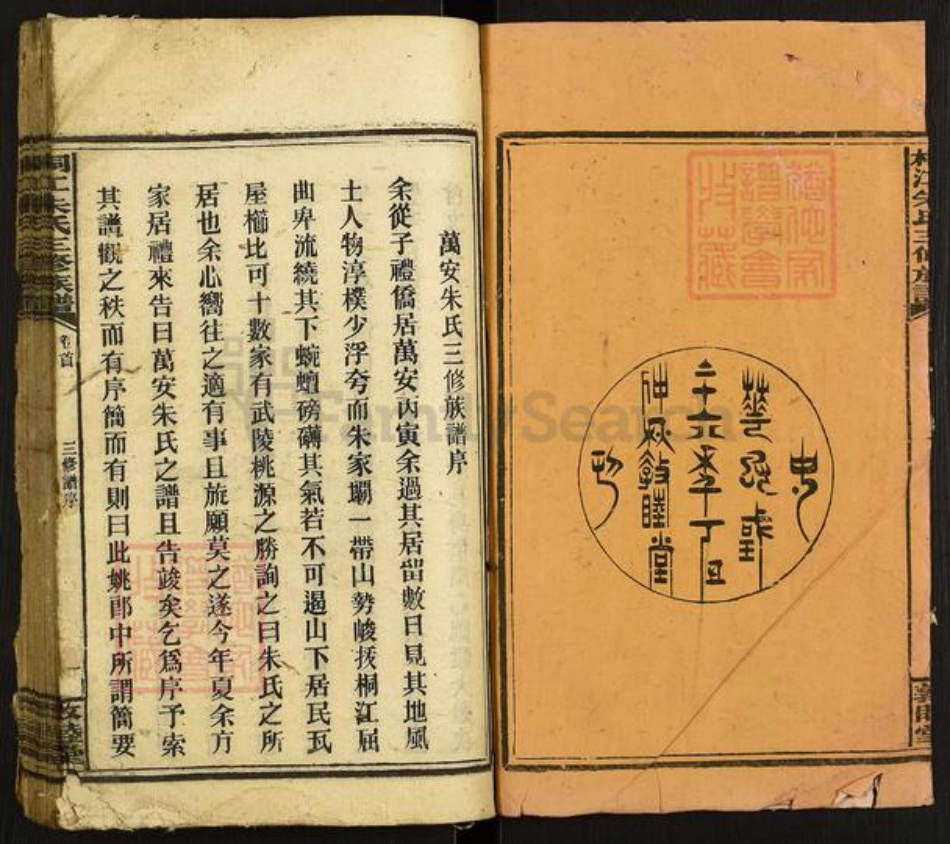 桐江朱氏三修族譜
中華民國
二十六年丁丑
仲秋敦睦堂
敦睦堂
萬安朱氏三修族譜序
余從子禮僑居萬安丙寅余過其居留數日見其地風
土人物淳樸少浮夸而朱家壩一帶山勢峻拔桐江屈
曲卑流繞其下蜿蟺磅礴其氣若不可遏山下居民瓦
屋櫛比可十數家有武陵桃源之勝詢之曰朱氏之所
居也余心嚮往之適有事且旋願莫之遂今年夏余方
家居禮來告曰萬安朱氏之譜且告竣矣乞爲序予索
其譜觀之秩而有序簡而有則曰此姚郎中所謂簡要
桐江朱氏三修族譜
卷首
三修譜序
一
敦睦堂
FamilySearch